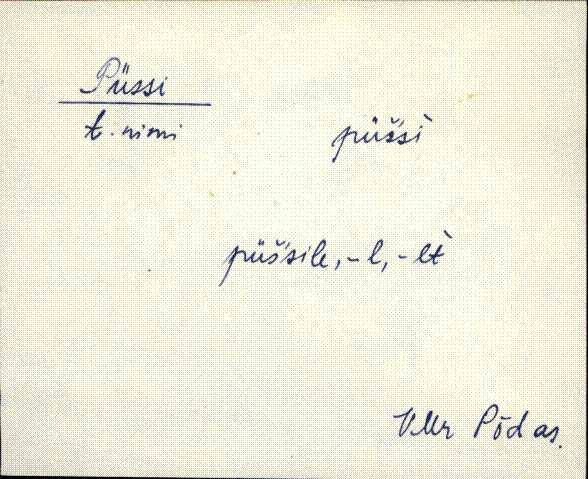 Püssi
t. nimi
püš́si̬
püš́sile, -l, -lt̀
VMr Põdas.